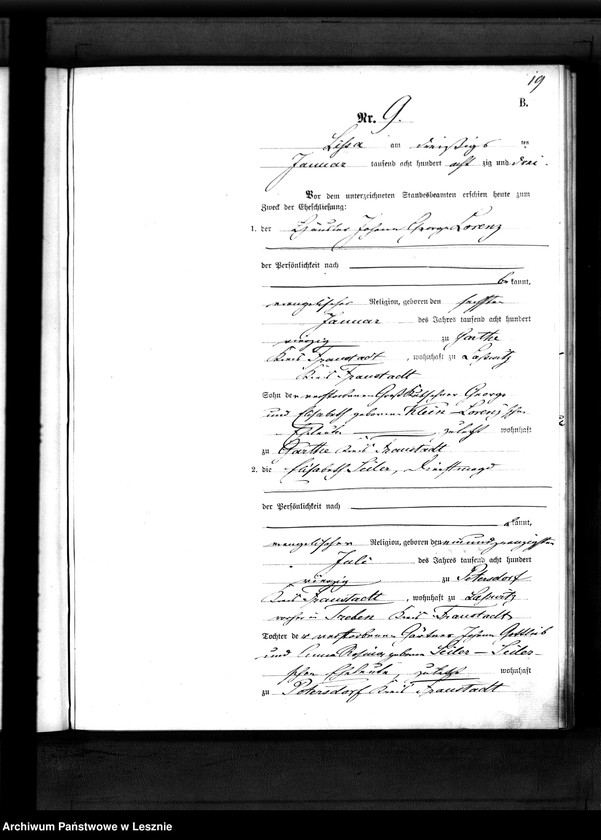 19
B.
Nr. 9.
Lissa am dreißigsten
Januar tausend acht hundert acht zig und drei.
Vor dem unterzeichneten Standesbeamten erschien heute zum
Zweck der Eheschließung:
1. der Häusler Johann George Lorenz
der Persönlichkeit nach
bekannt,
evangelischer Religion, geboren den
Januar des Jahres tausend acht hundert
vierzig zu Garthe
Kreis Fraustadt, wohnhaft zu Laßwitz
Kreis Fraustadt
Sohn der verstorbenen George
und Elisabeth geborenen Klein - Lorenz'schen
Eheleute zuletzt wohnhaft
zu Garthe Kreis Fraustadt
2. die Elisabeth Seiler, Dienstmagd
der Persönlichkeit nach
kannt,
evangelischer Religion, geboren den einundzwanzigsten
Juli des Jahres tausend acht hundert
vierzig zu Petersdorf
Kreis Fraustadt, wohnhaft zu Laßwitz
vorher in Treben Kreis Fraustadt
Tochter der verstorbenen Gärtner Johann Gottlieb
und Anna Rosina geborenen Seiler - Seiler
schen Eheleute, zuletzt wohnhaft
zu Petersdorf Kreis Fraustadt
Archiwum Państwowe w Lesznie